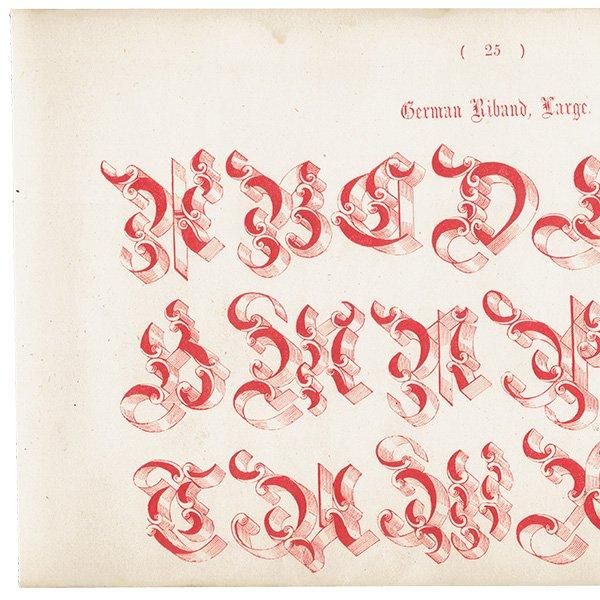 ( 25 )
German Riband, Large.
A B C D
L M N O
T U W